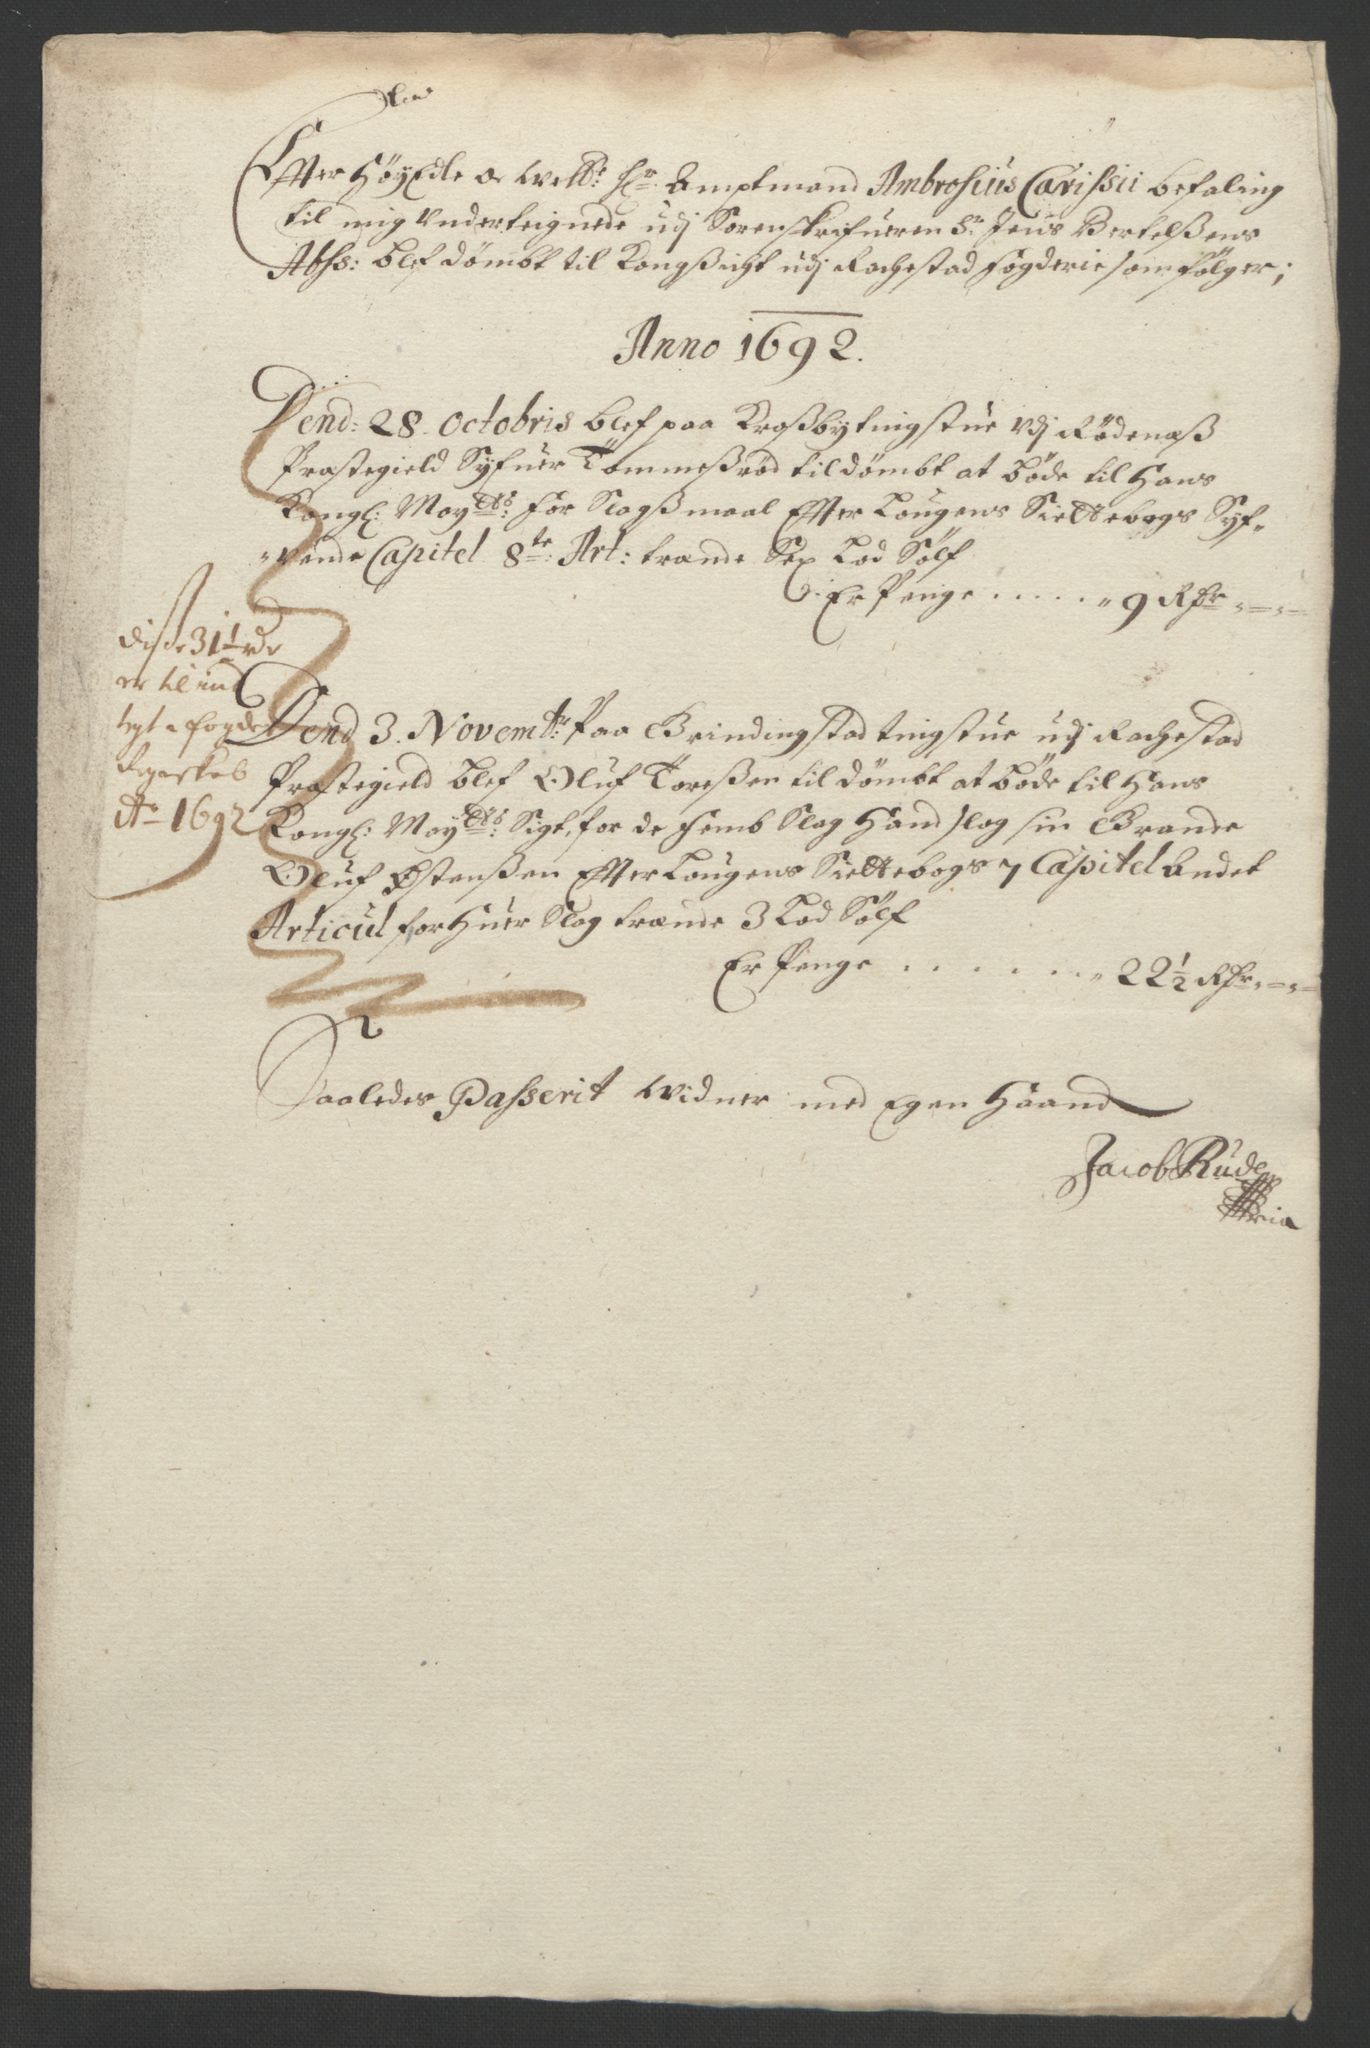 Efter HøyEdle oc Welb: Hr: Amptmand Ambrosius Carissii befaling
til mig underteignede udj Sorenskrifueren Sr: Jens Bertelßens
Abss: blef dømbt til Kongßickt udj Rachestad Fogderie som følger;
Anno 1692.
Dend: 28. Octobris blef paa Kroßby tingstue Vdj Rødenæß
Præstegield Syfuer Tommeßrød tildømbt at bøde til Hans
Kongl: Maytts: for Slagßmaal Efter Lougens Siettebogs Syf-
-vende Capitel 8te: Art: trende Sex Lod Sølf
Er Penge ..... 9 Rdr
Disse 31½ rdr
er til ind
tegt i fogdens
Regnskab
Ao 1692
Dend 3. Novembr: Paa Grindingstad tingstue udj Rachestad
Præstegield blef Oluf Toreßen tildømbt at bøde til Hans
Kongl: Maytts: Sigt, for de Femb Slag Hand slog sin Grande
Oluf Østenßen Efter Lougens Siettebogs 7 Capitel Andet
Articul for Huer Slag trende 3 Lod Sølf
Er Penge ....... 22½ Rdr
Saaledes Passerit Widner med Egen Haand
Jacob Rude
mria